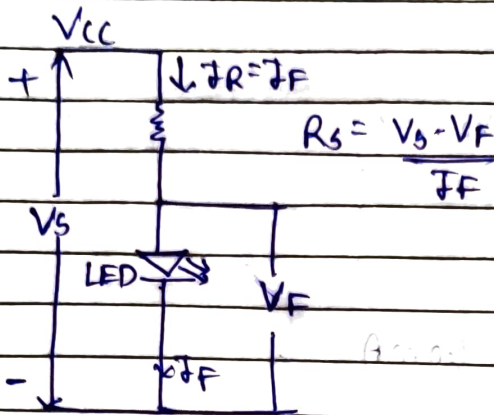 VCC
+
↓ IR=IF
RS = VS - VF
IF
VS
LED
VF
IF
-